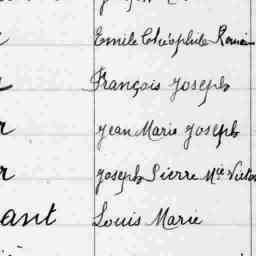 Emile Théophile Romain
François Joseph
Jean Marie Joseph
Joseph Pierre Mie Victor
ant Louis Marie